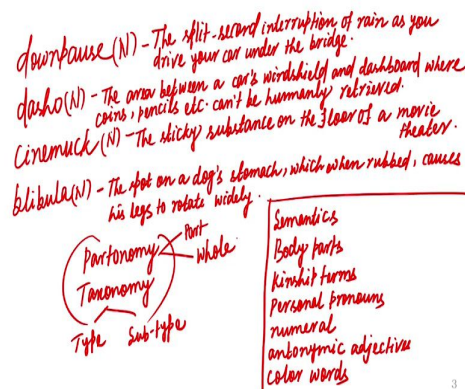 downpause (N) - The split-second interruption of rain as you
drive your car under the bridge.
dasho (N) - The area between a car's windshield and dashboard where
coins, pencils etc. can't be humanly retrieved.
Cinemuck (N) - The sticky substance on the floor of a movie
theater.
blibula (N) - The spot on a dog's stomach, which when rubbed, causes
his legs to rotate widely.
Partonomy
Part
Whole
Taxonomy
Type Sub-type
Semantics
Body parts
Kinship terms
Personal pronouns
numeral
antonymic adjectives
color words
3